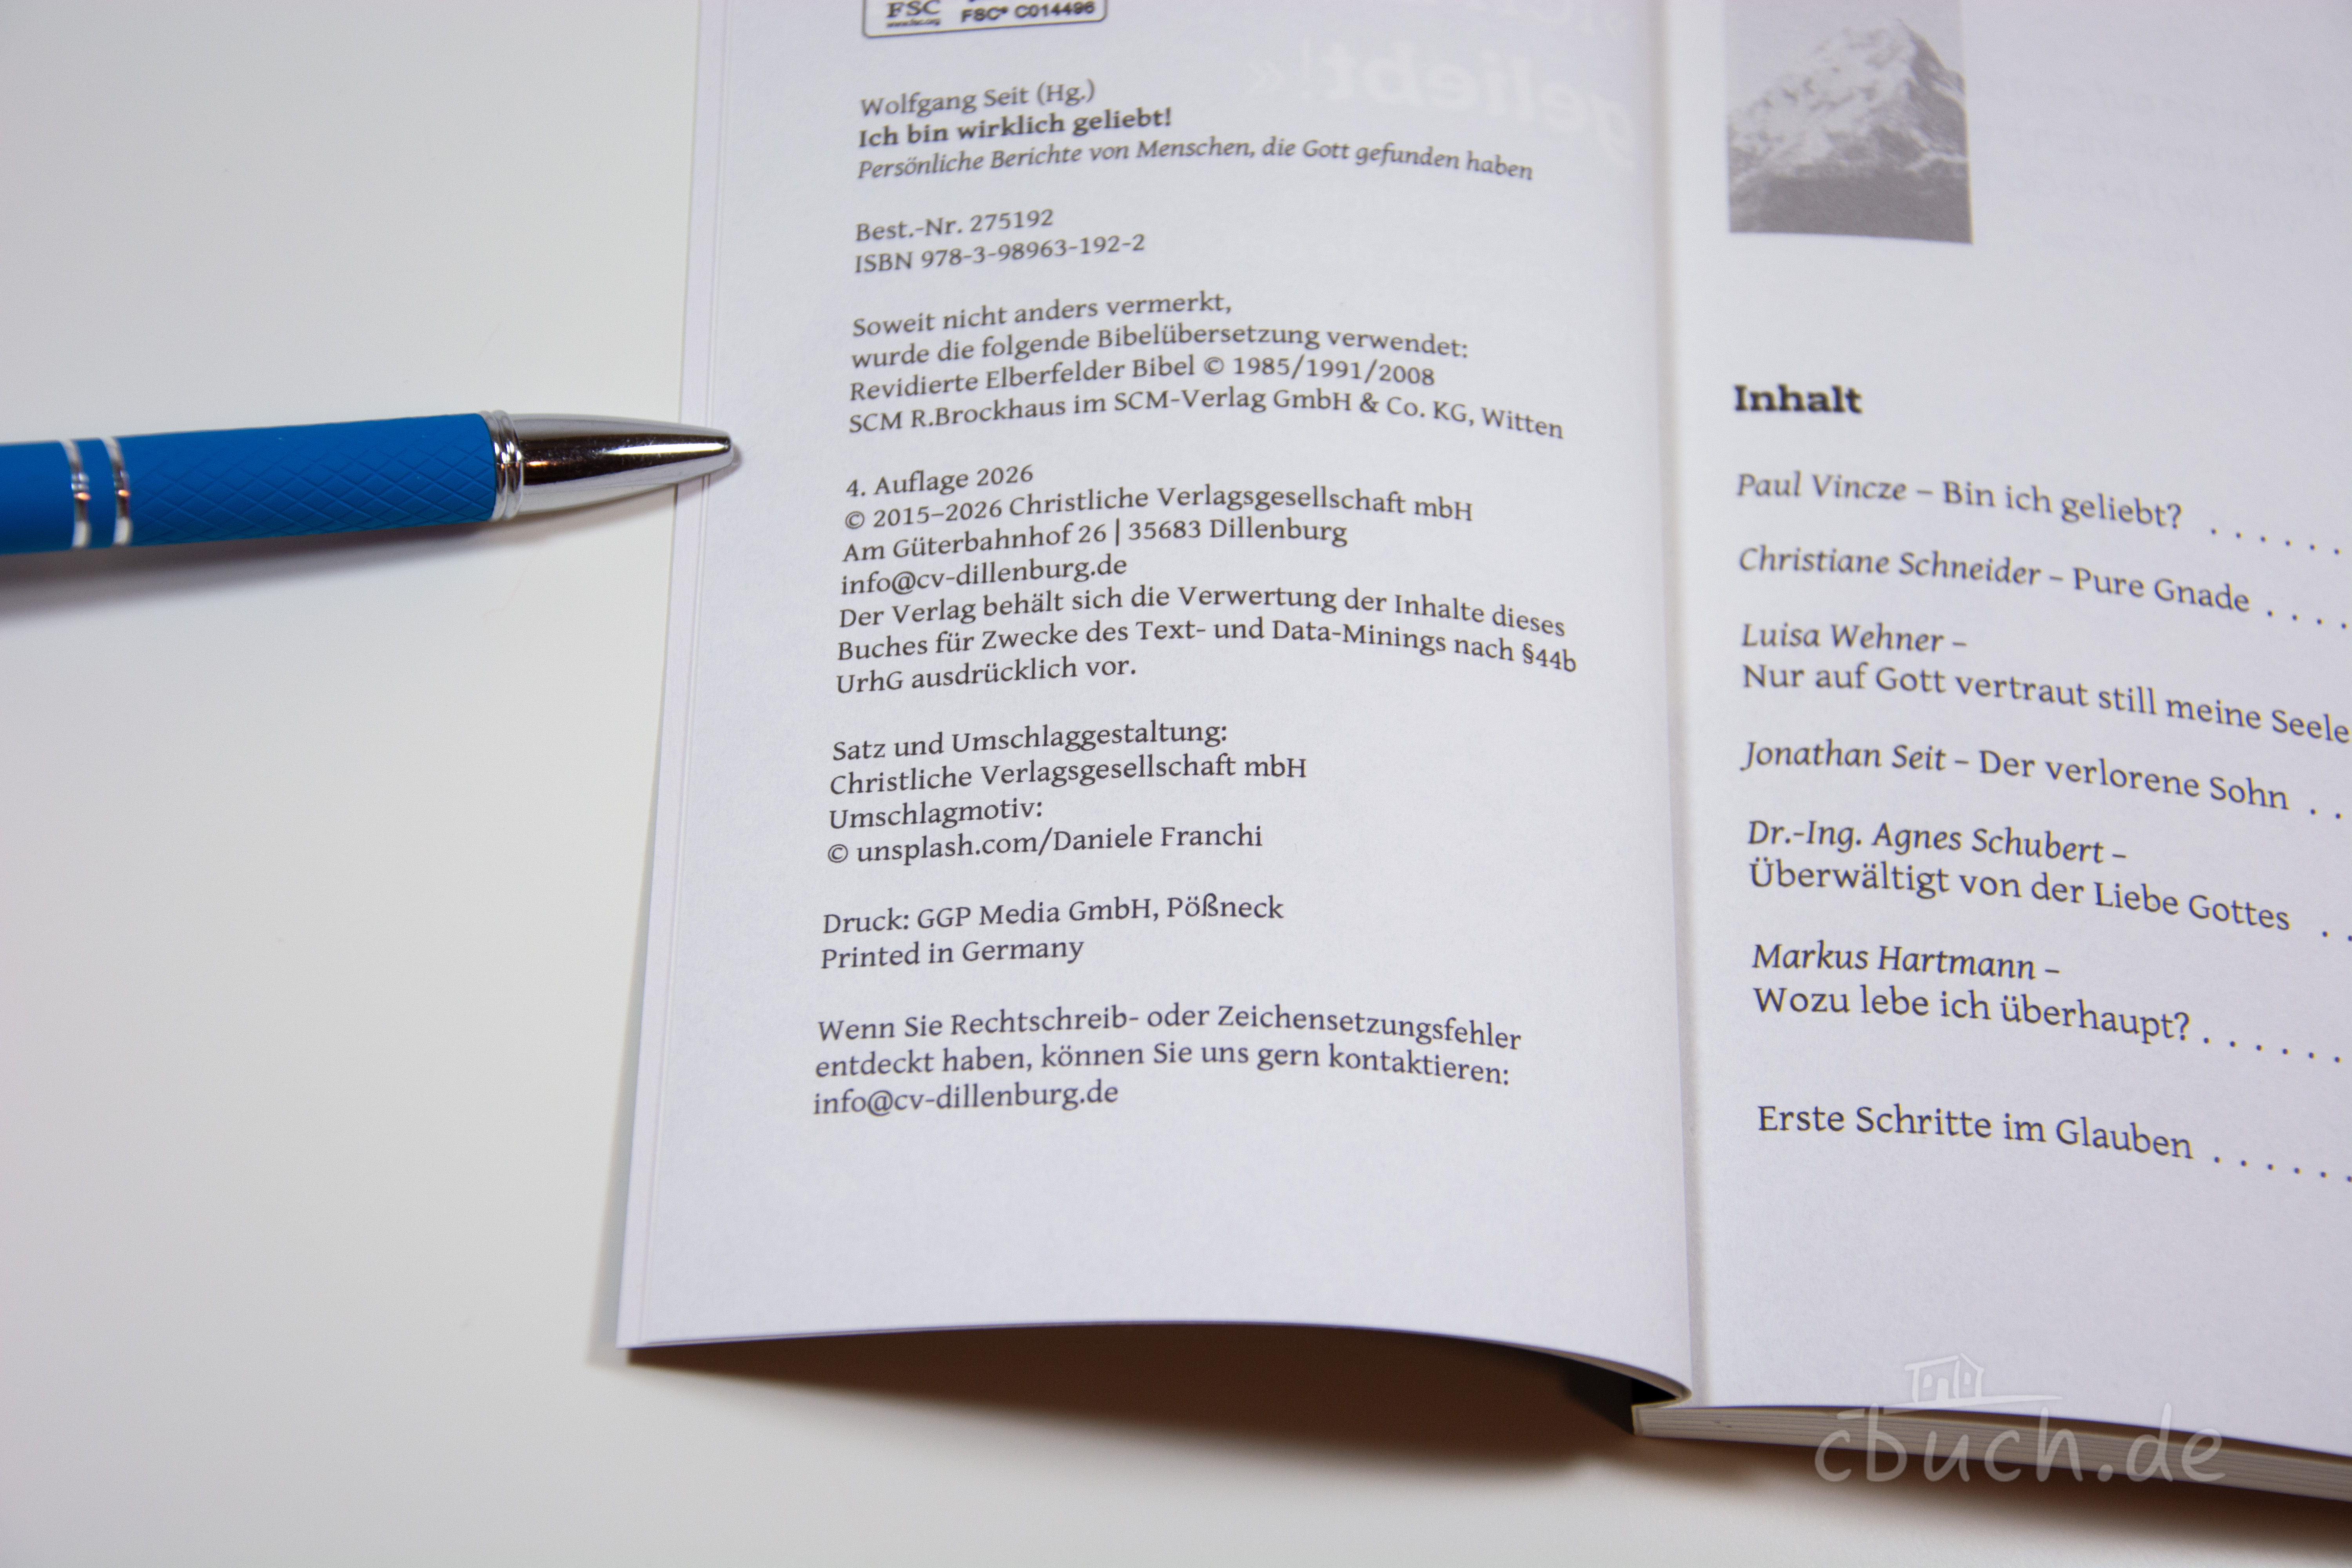 FSC
www.fsc.org
FSC® C014496
Wolfgang Seit (Hg.)
Ich bin wirklich geliebt!
Persönliche Berichte von Menschen, die Gott gefunden haben
Best.-Nr. 275192
ISBN 978-3-98963-192-2
Soweit nicht anders vermerkt,
wurde die folgende Bibelübersetzung verwendet:
Revidierte Elberfelder Bibel © 1985/1991/2008
SCM R.Brockhaus im SCM-Verlag GmbH & Co. KG, Witten
4. Auflage 2026
© 2015–2026 Christliche Verlagsgesellschaft mbH
Am Güterbahnhof 26 | 35683 Dillenburg
info@cv-dillenburg.de
Der Verlag behält sich die Verwertung der Inhalte dieses
Buches für Zwecke des Text- und Data-Minings nach §44b
UrhG ausdrücklich vor.
Satz und Umschlaggestaltung:
Christliche Verlagsgesellschaft mbH
Umschlagmotiv:
© unsplash.com/Daniele Franchi
Druck: GGP Media GmbH, Pößneck
Printed in Germany
Wenn Sie Rechtschreib- oder Zeichensetzungsfehler
entdeckt haben, können Sie uns gern kontaktieren:
info@cv-dillenburg.de
Inhalt
Paul Vincze – Bin ich geliebt? . . . . . .
Christiane Schneider – Pure Gnade . . . .
Luisa Wehner –
Nur auf Gott vertraut still meine Seele
Jonathan Seit – Der verlorene Sohn . .
Dr.-Ing. Agnes Schubert –
Überwältigt von der Liebe Gottes . .
Markus Hartmann –
Wozu lebe ich überhaupt? . . . . . .
Erste Schritte im Glauben . . . . . .
cbuch.de